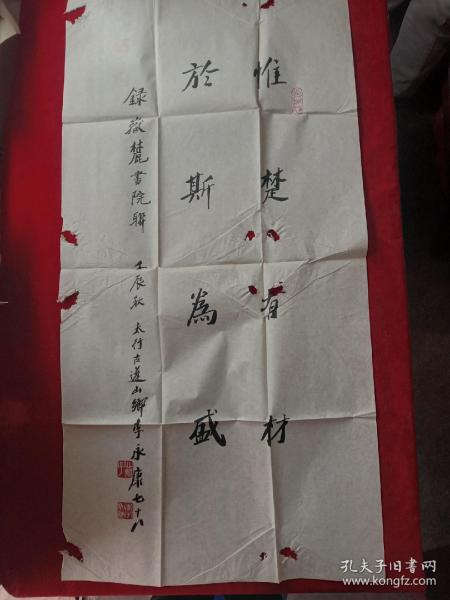 惟楚有材
於斯為盛
録嶽麓書院聯 壬辰秋 太行古遼山鄉李永康七十八
孔夫子旧书网
www.kongfz.com